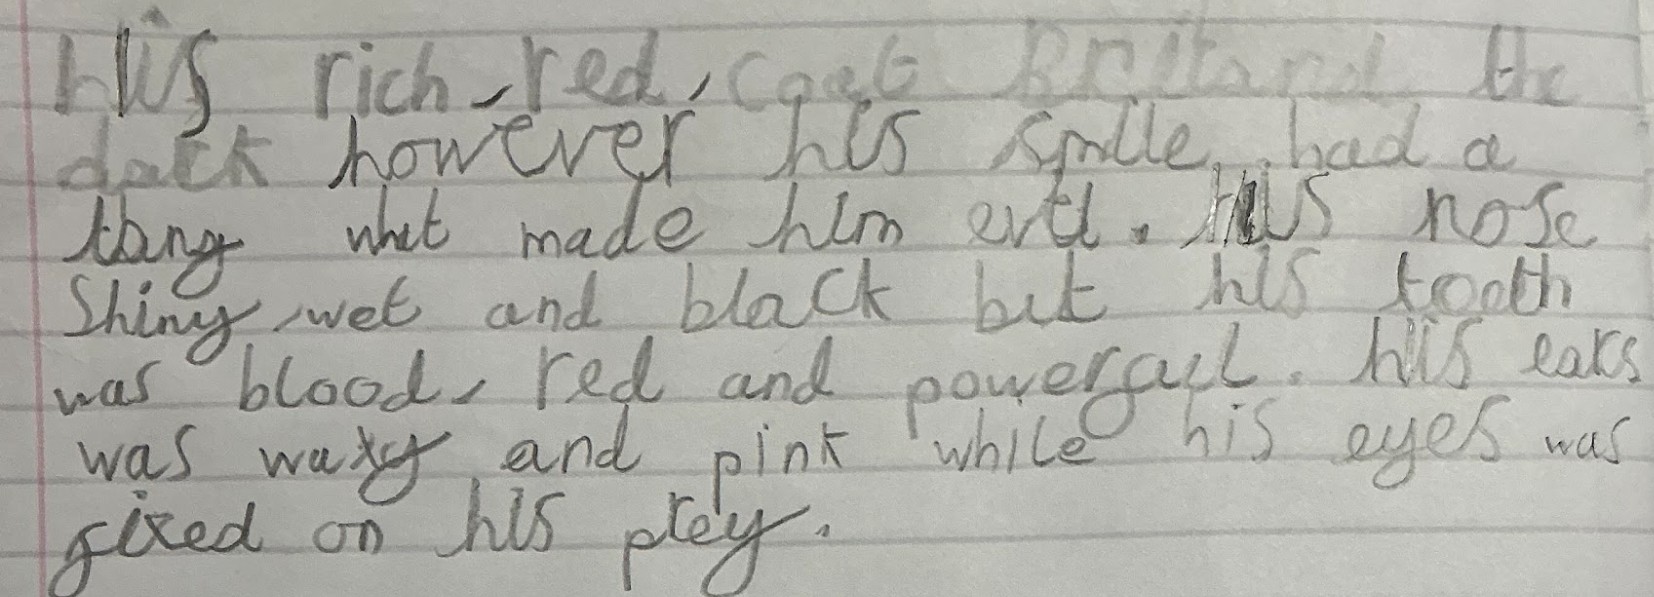 his rich, red, coat the
dark however his smile, had a
thing whet made him evil. His nose
Shiny, wet and black but his tooth
was blood, red and powerfull. his ears
was waxy and pink while his eyes was
fixed on his prey.